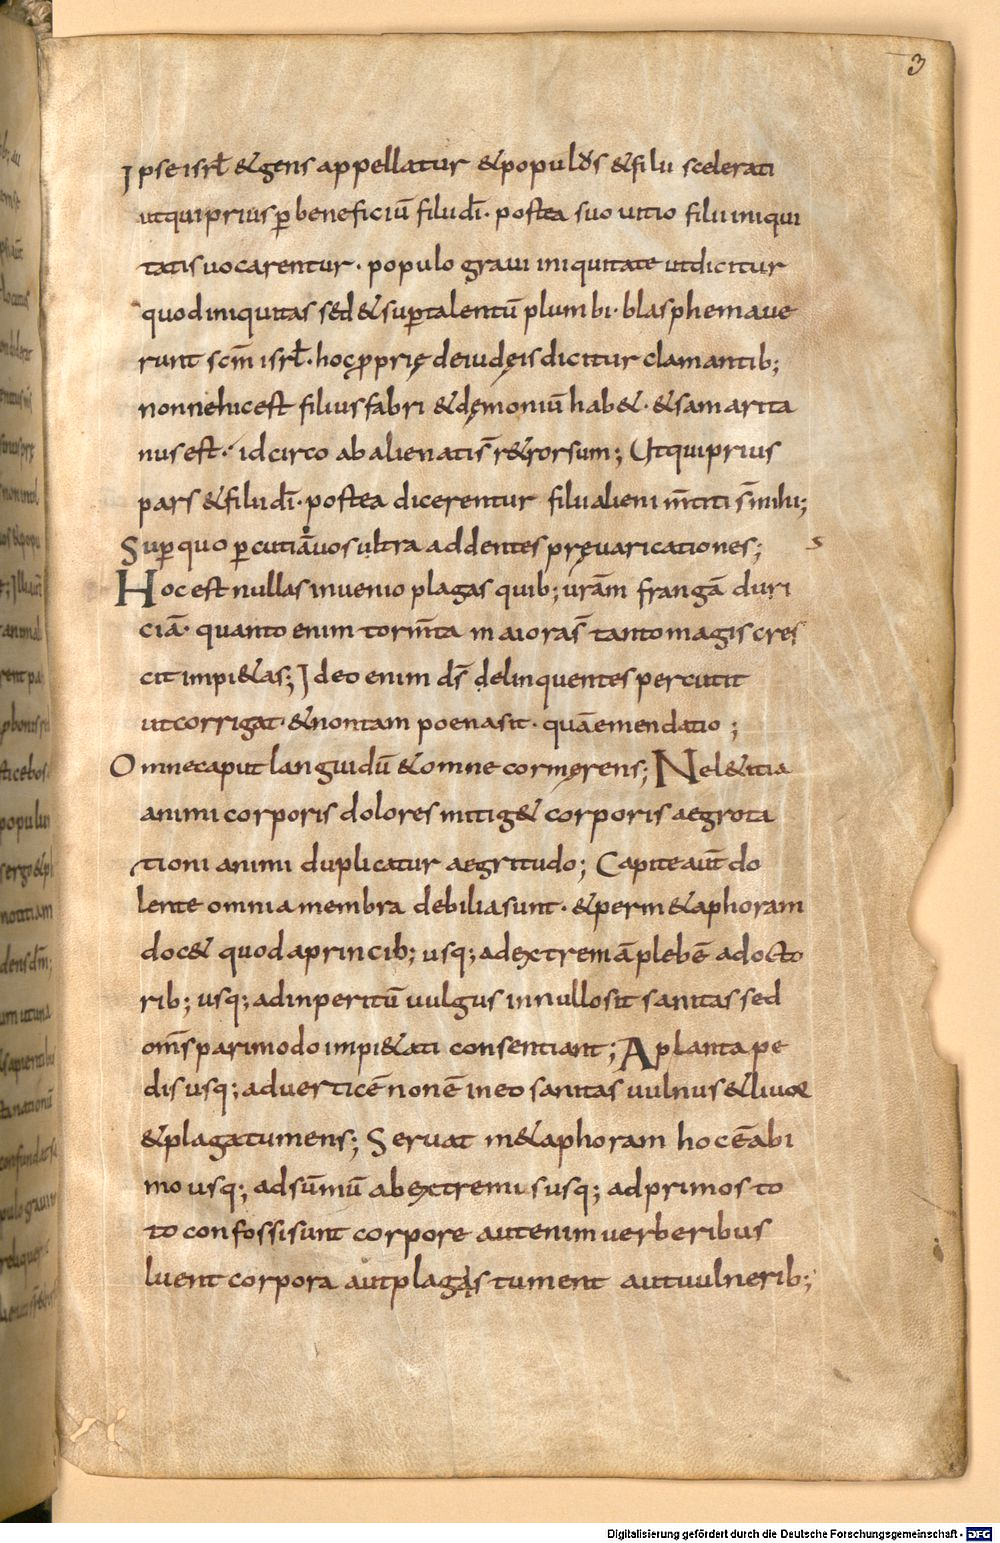 3
Ipse isrł & gens appellatur & populus & filii scelerati
ut qui prius ꝑ beneficiū filii dī· postea suo uitio filii iniqui
tatis uocarentur· populo graui iniquitate ut dicitur
quod iniquitas sed & suꝑ talentū plumbi· blasphemaue
runt scm̄ isrł· hoc ꝓprię de iudęis dicitur clamantib;
nonne hic est filius fabri & dęmoniū hab&· & samarita
nus est· idcirco abalienati s̄ r&rorsum; Ut qui prius
pars & filii dī· postea dicerentur filii alieni m̄titi s̄ mihi;
Suꝑ quo ꝑcutiā uos ultra addentes pręuaricationes;
s
Hoc est nullas inuenio plagas quib; urām frangā duri
ciā· quanto enim torm̄ta maiora s̄ tanto magis cres
cit impi&as; Ideo enim ds̄ delinquentes percutit
ut corrigat· & non tam poena sit· quā emendatio;
Omne caput languidū & omne cor męrens; Nel&itia
animi corporis dolores mitig& corporis aegrota
tioni animi duplicatur aegritudo; Capite aūt do
lente omnia membra debilia sunt· & per m&aphoram
doc& quod a princib; usq; ad extremā plebē a docto
rib; usq; ad inperitū uulgus in nullo sit sanitas sed
om̄s pari modo impi&ati consentiant; A planta pe
dis usq; ad uerticē non ē in eo sanitas uulnus & liuor
& plaga tumens; Seruat m&aphoram hoc ē ab i
mo usq; ad sūmū ab extremis usq; ad primos to
to confossi sunt corpore aut enim uerberibus
luent corpora aut plagas tument aut uulnerib;
Digitalisierung gefördert durch die Deutsche Forschungsgemeinschaft - DFG